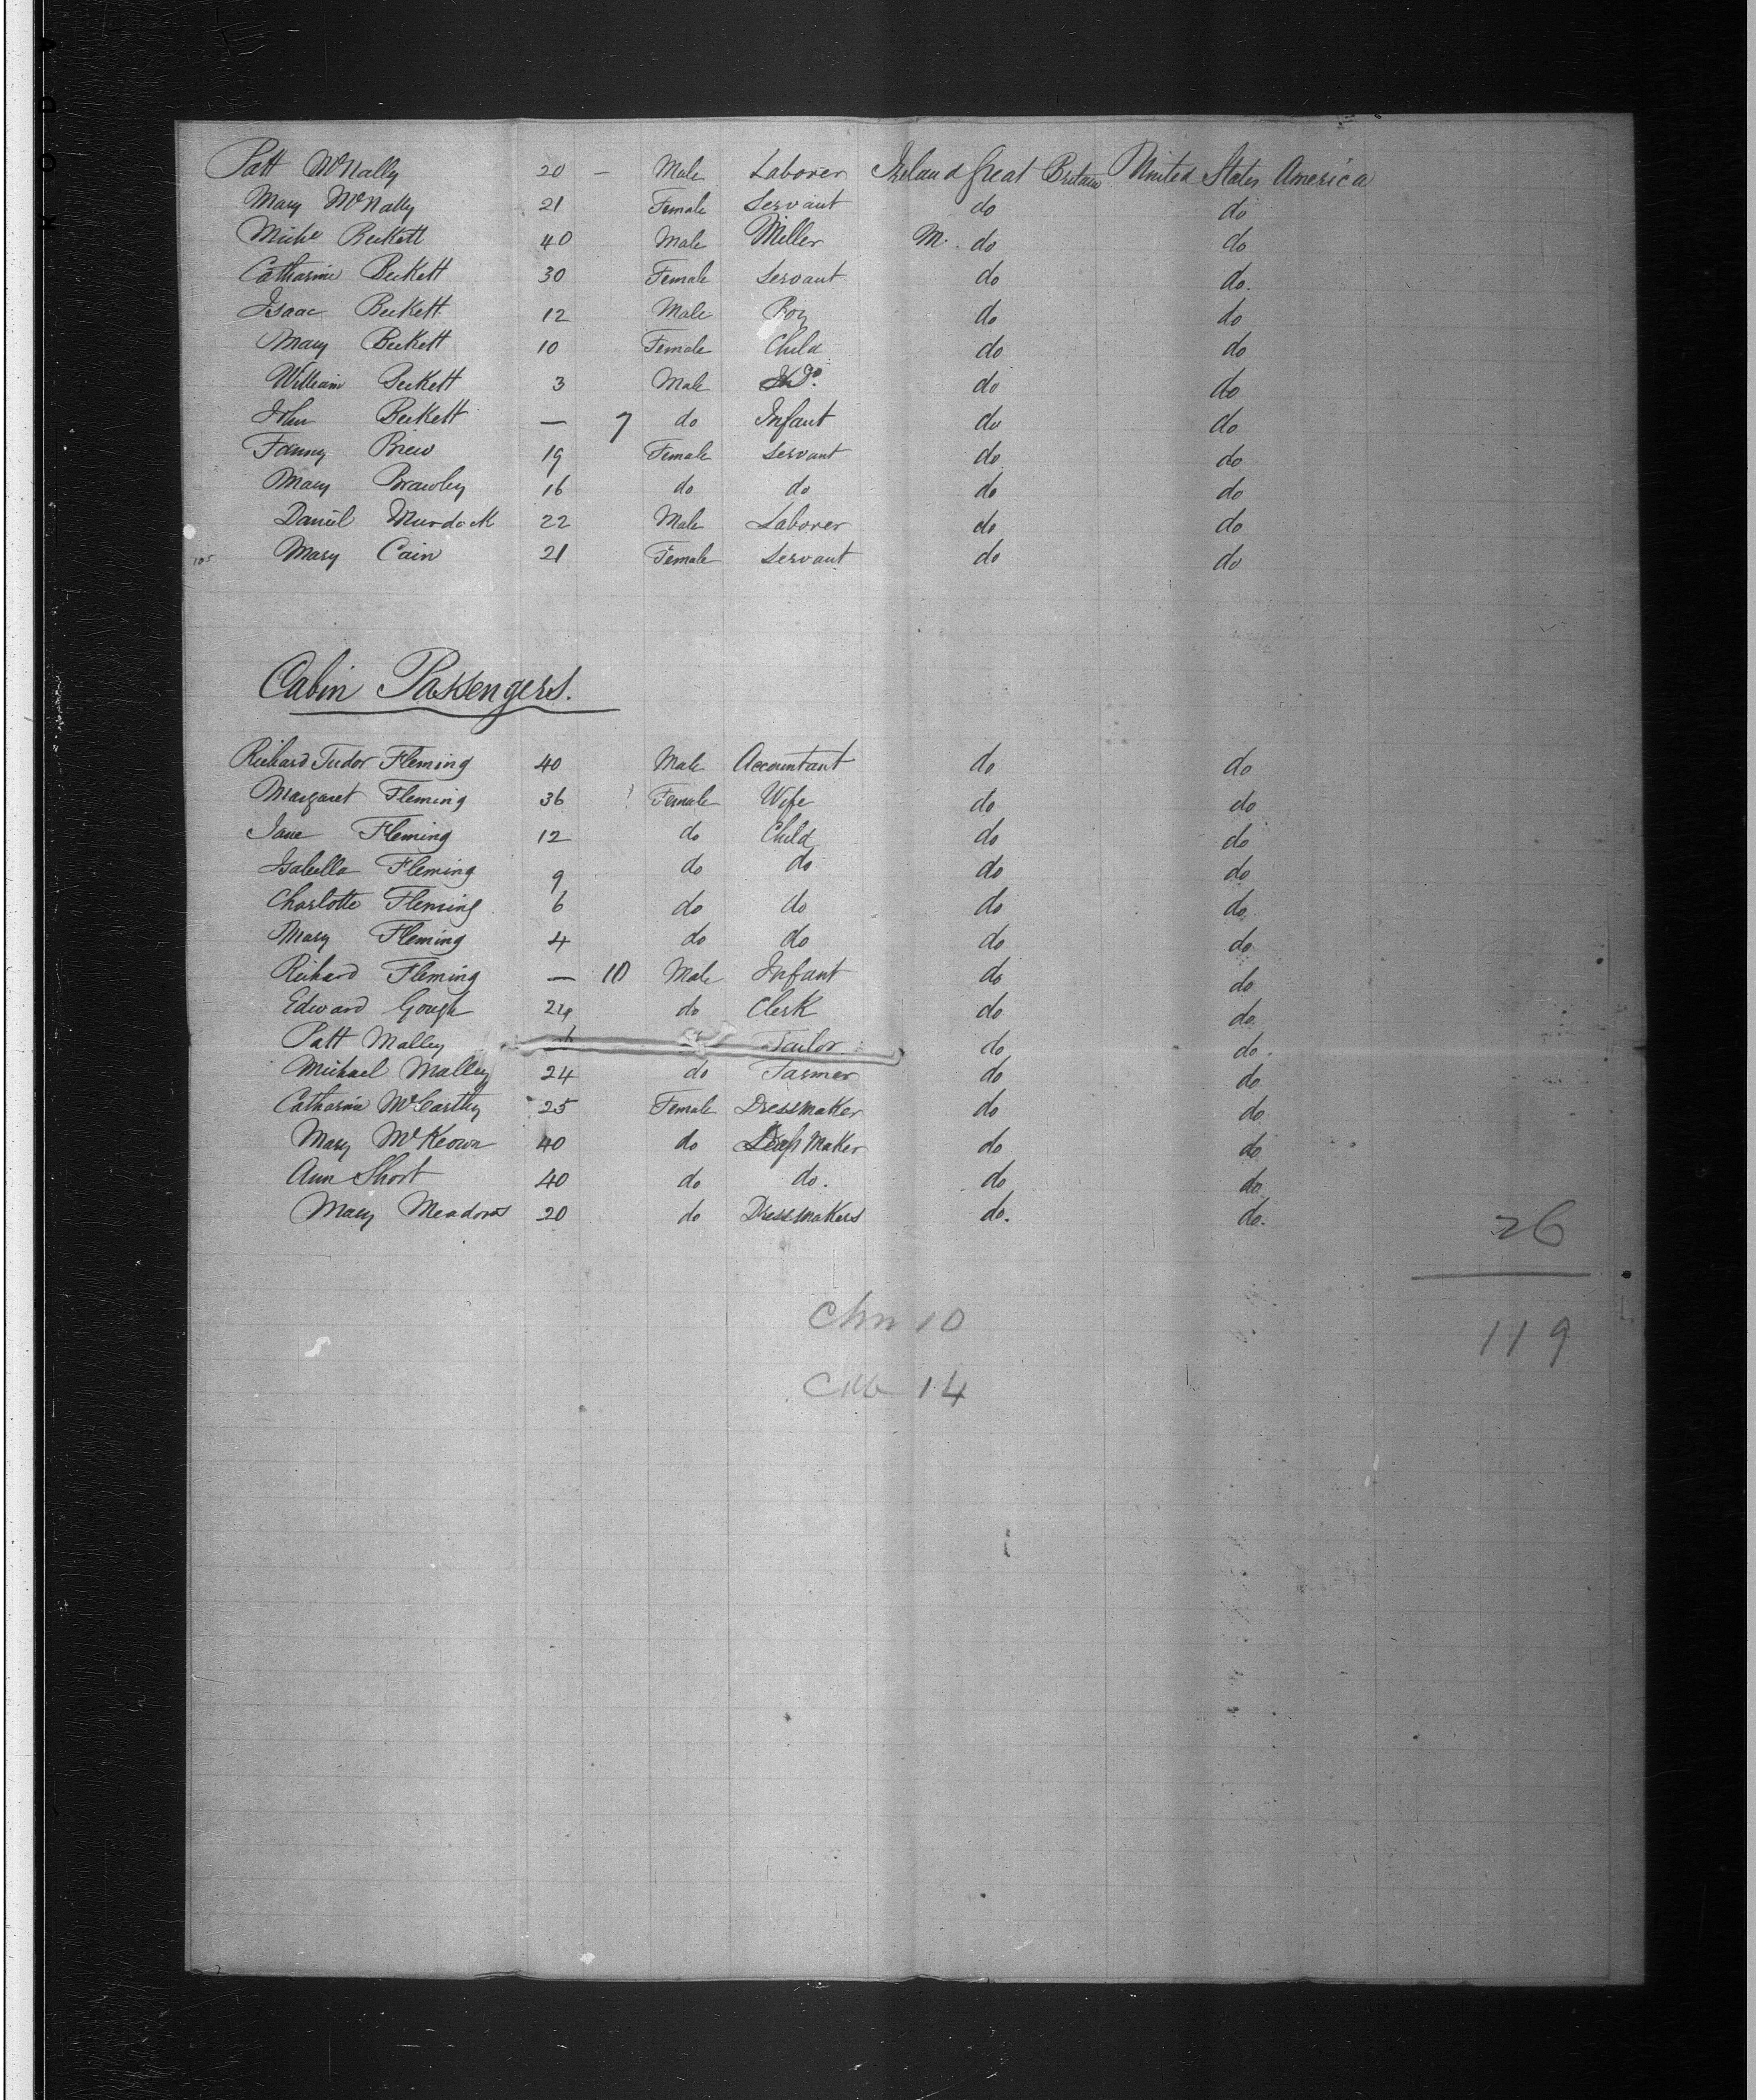 Patt McNally 20 — Male Laborer Ireland Great Britain United States America
Mary McNally 21 Female Servant do do
Miche Beckett 40 Male Miller M. do do
Catharine Beckett 30 Female Servant do do.
Isaac Beckett 12 Male Boy do do
Mary Beckett 10 Female Child do do
William Beckett 3 Male Do. do do
John Beckett — 7 do Infant do do
Fanny Brew 19 Female Servant do do
Mary Brawley 16 do do do do
Daniel Murdock 22 Male Laborer do do
105 Mary Cain 21 Female Servant do do
Cabin Passengers.
Richard Tudor Fleming 40 Male Accountant do do
Margaret Fleming 36 Female Wife do do
Jane Fleming 12 do Child do do
Isabella Fleming 9 do do do do
Charlotte Fleming 6 do do do do
Mary Fleming 4 do do do do
Richard Fleming — 10 Male Infant do do
Edward Gough 24 do Clerk do do
Patt Malley Tailor do do.
Michael Malley 24 do Farmer do do
Catharine McCarthy 25 Female Dressmaker do do
Mary McKeown 40 do Maker do do
Ann Short 40 do do. do do
Mary Meadows 20 do Dressmakers do. do.
26
119
Chn 10
Cab 14